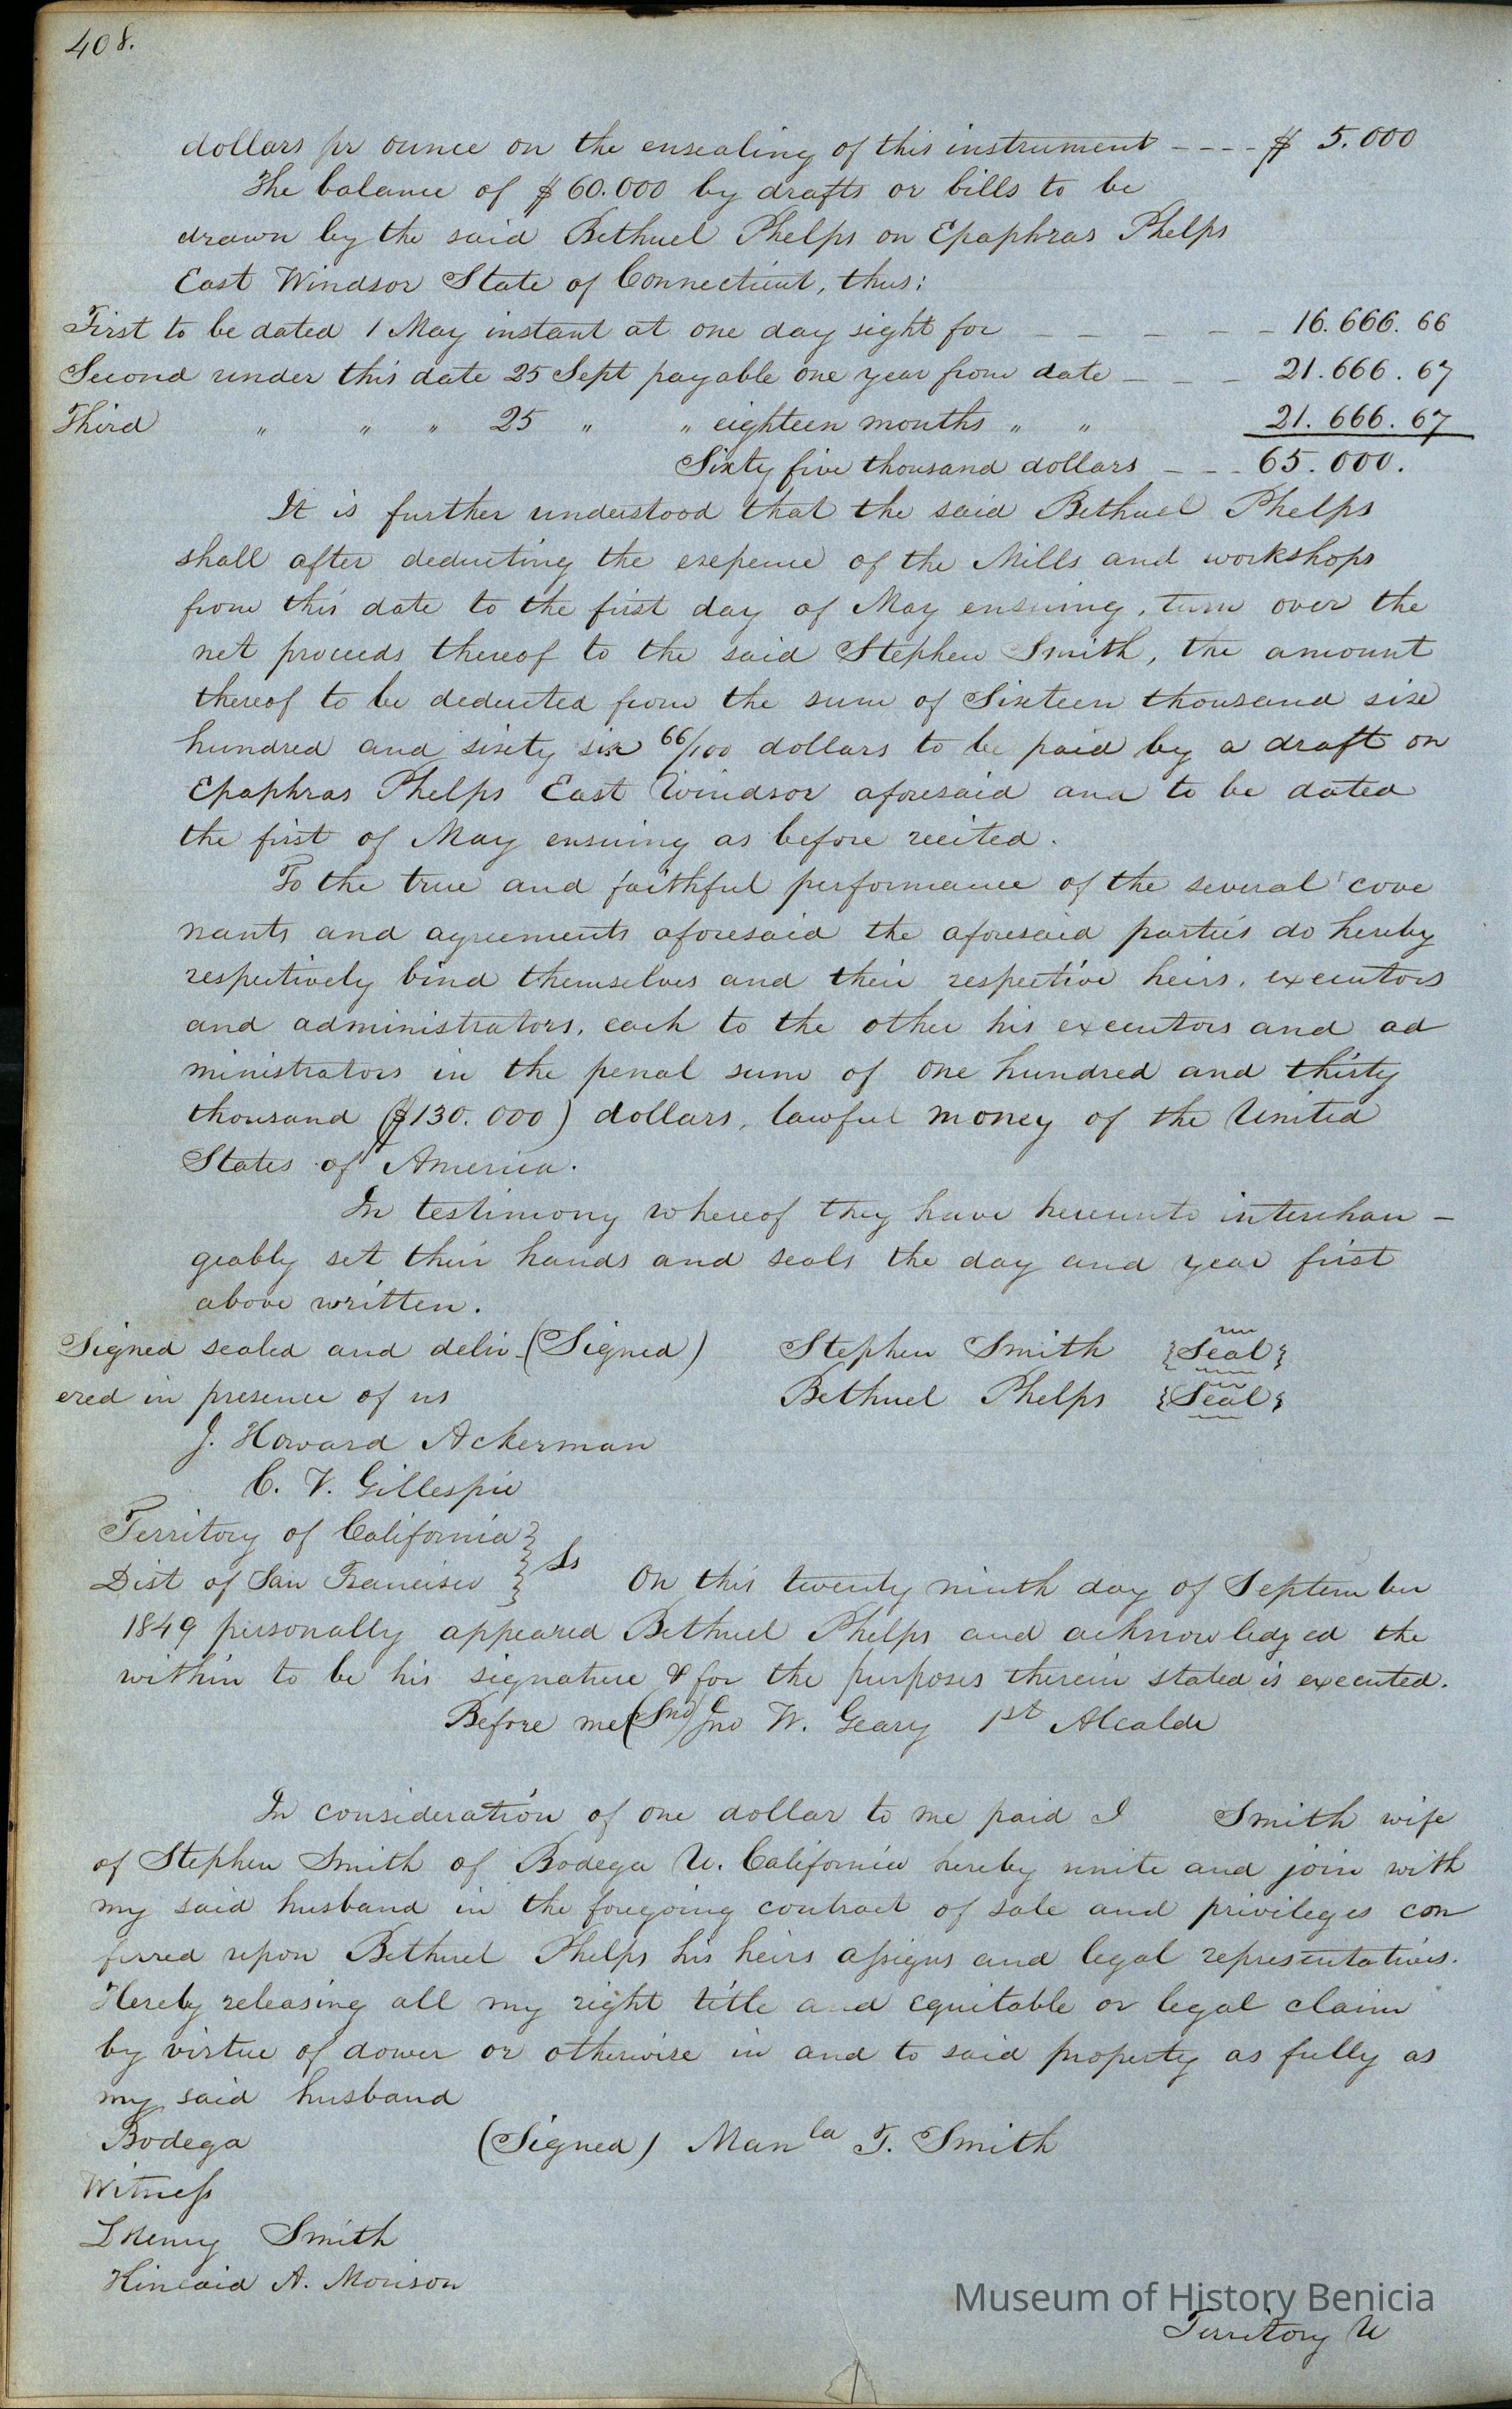 408.
dollars pr ounce on the ensealing of this instrument - - - - $ 5.000
The balance of $60.000 by drafts or bills to be
drawn by the said Bethuel Phelps on Epaphras Phelps
East Windsor State of Connecticut, thus:
First to be dated 1 May instant at one day sight for - - - - - 16.666.66
Second under this date 25 Sept payable one year from date - - - 21.666.67
Third " " " 25 " " eighteen months " " 21.666.67
Sixty five thousand dollars - - - 65.000.
It is further understood that the said Bethuel Phelps
shall after deducting the expence of the Mills and workshops
from this date to the first day of May ensuing, turn over the
net proceeds thereof to the said Stephen Smith, the amount
thereof to be deducted from the sum of Sixteen thousand six
hundred and sixty six 66/100 dollars to be paid by a draft on
Epaphras Phelps East Windsor aforesaid and to be dated
the first of May ensuing as before recited.
To the true and faithful performance of the several cove
nants and agreements aforesaid the aforesaid parties do hereby
respectively bind themselves and their respective heirs, executors
and administrators, each to the other his executors and ad
ministrators in the penal sum of One hundred and thirty
thousand ($130.000) dollars, lawful money of the United
States of America.
In testimony whereof they have hereunto interchan -
geably set their hands and seals the day and year first
above written.
Signed sealed and deliv - (Signed) Stephen Smith {Seal}
ered in presence of us Bethuel Phelps {Seal}
J. Howard Ackerman
C. V. Gillespie
Territory of California }
Dist of San Francisco } Ss On this twenty ninth day of September
1849 personally appeared Bethuel Phelps and acknowledged the
within to be his signature & for the purposes therein stated is executed.
Before me (Snd) Jno W. Geary 1st Alcalde
In consideration of one dollar to me paid I Smith wife
of Stephen Smith of Bodega U. California hereby unite and join with
my said husband in the foregoing contract of sale and privileges con
ferred upon Bethuel Phelps his heirs assigns and legal representatives.
Hereby releasing all my right title and equitable or legal claim
by virtue of dower or otherwise in and to said property as fully as
my said husband
Bodega (Signed) Manla T. Smith
Witness
L Henry Smith
Kincaid A. Morison
Museum of History Benicia
Territory U